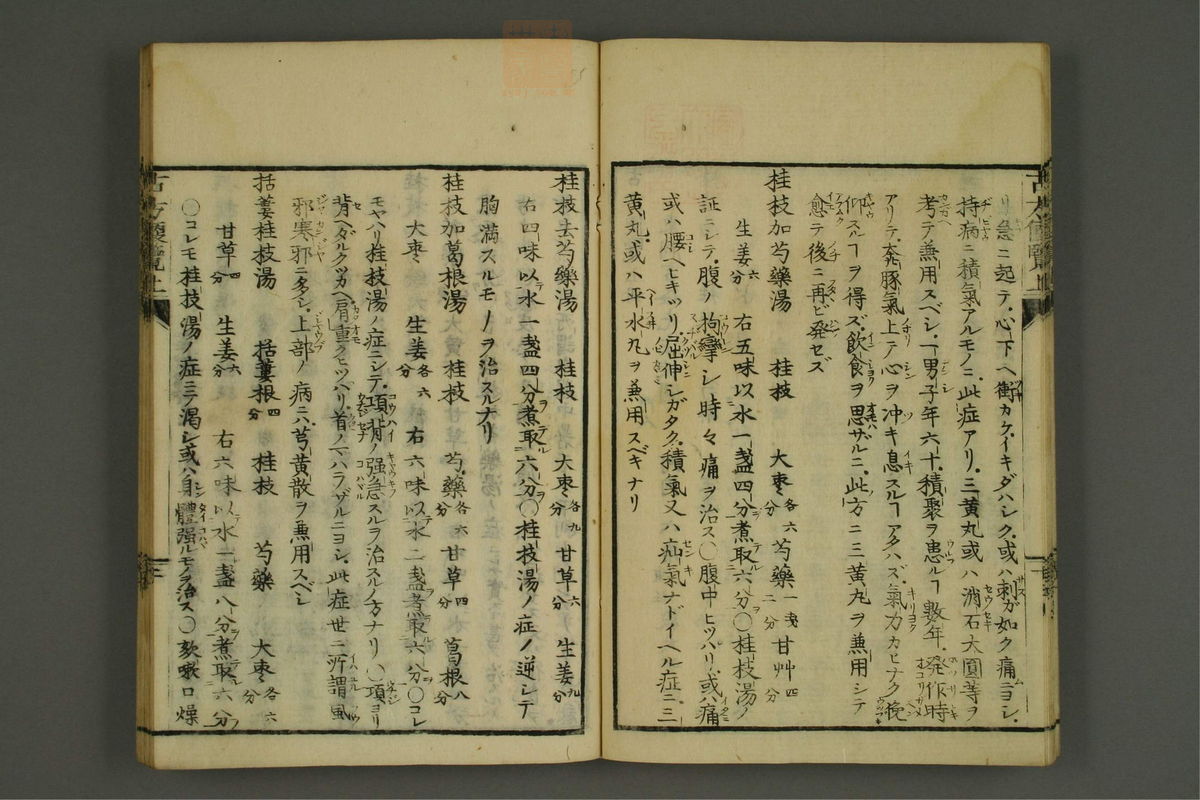 リ急ニ起テ、心下ヘ衝カケ、イキダハシク、或ハ刺ガ如ク痛ニヨシ、
持病ニ積氣アルモノニ此症アリ、三黄丸或ハ消石大圓等ヲ
考テ兼用スベシ、一男子年六十、積聚ヲ患ルヿ數年、発作時
アリテ、奔豚氣上テ心ヲ冲キ息スルヿアタハズ、氣力カヒナク
仰スルヿヲ得ズ、飲食ヲ思ザルニ、此方ニ三黄丸ヲ兼用シテ
愈テ後ニ再ビ発セズ
桂枝加芍藥湯 桂枝 大棗各六分 芍藥一戔二分 甘艸四分
生姜六分 右五味以水一盞四分煮取六分〇桂枝湯ノ
証ニシテ、腹ノ拘攣シ時々痛ヲ治ス〇腹中ヒツパリ、或ハ痛
或ハ腰ヘヒキツリ、屈伸シガタク、積氣又ハ疝氣ナドイヘル症ニ三
黄丸、或ハ平水丸ヲ兼用スベキナリ
古方便覧上
桂枝去芍藥湯 桂枝 大棗各九分 甘草六分 生姜九分
右四味以水一盞四分煮取六分〇桂枝湯ノ症ノ逆シテ
胸満スルモノヲ治スルナリ
桂枝加葛根湯 桂枝 芍藥各六分 甘草四分 葛根八分
大棗 生姜各六分 右六味以水二盞煮取六分〇コレ
モヤハリ桂枝湯ノ症ニシテ、項背ノ強急スルヲ治スルノ方ナリ〇項ヨリ
背ダルクツカヘ肩重クヒツハリ首ノマハラザルニヨシ、此症世ニ所謂風
邪寒邪ニ多シ、上部ノ病ニハ芎黄散ヲ兼用スベシ
括蔞桂枝湯 括蔞根四分 桂枝 芍藥 大棗各六分
甘草四分 生姜六分 右六味以水一盞八分煮取六分
〇コレモ桂枝湯ノ症ニテ渇シ或ハ身體强ルモノヲ治ス〇欬嗽口燥
古方便覧上